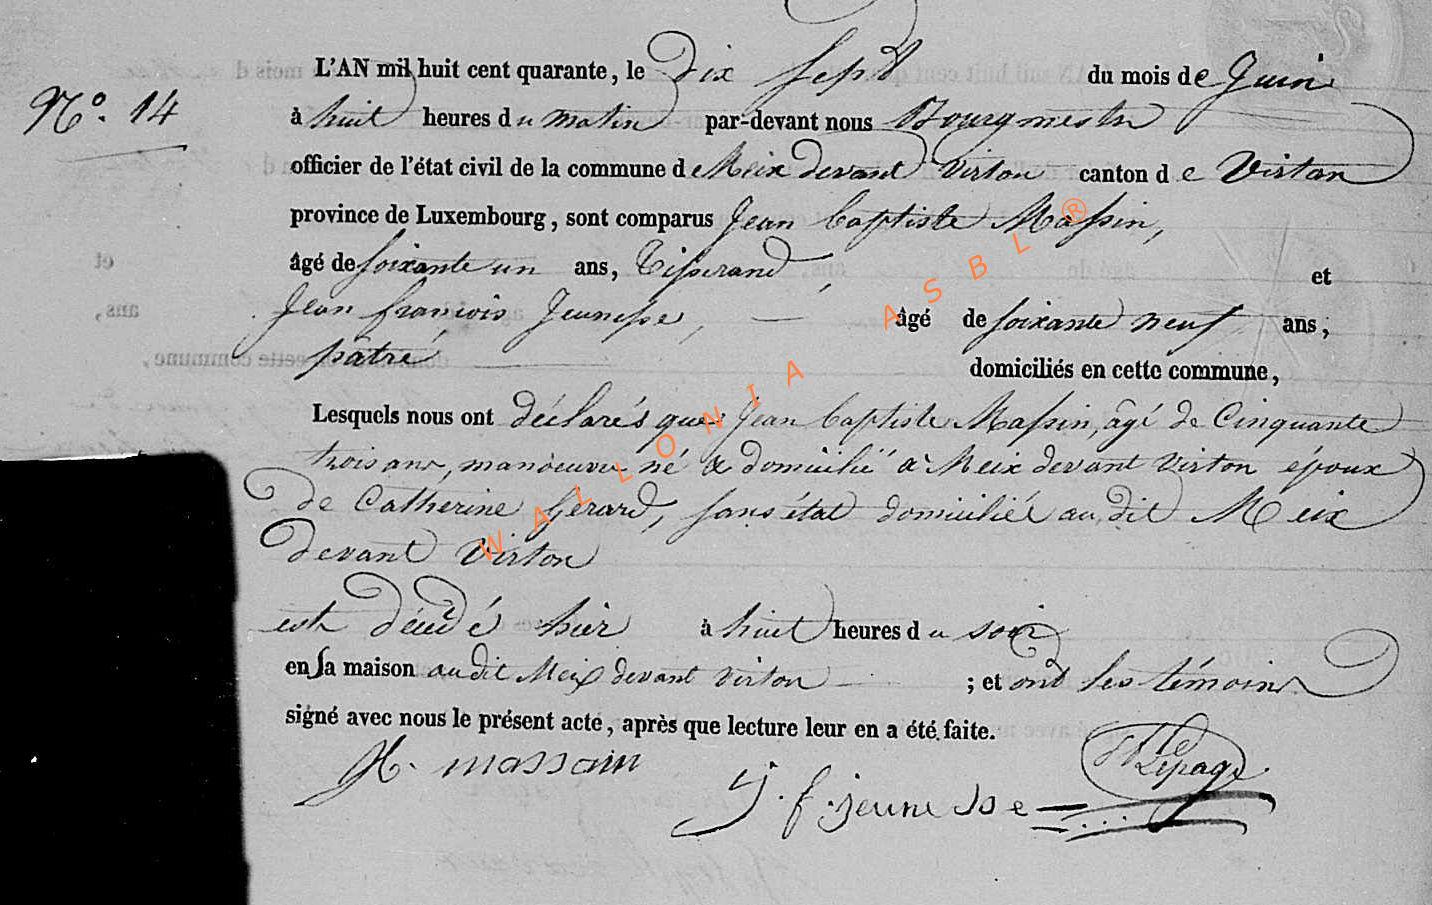 L'AN mil huit cent quarante, le dix sept du mois de Juin
N.º 14
à huit heures du matin par-devant nous Bourgmestre
officier de l'état civil de la commune de Meix devant Virton canton de Virton
province de Luxembourg, sont comparus Jean Baptiste Massin,
âgé de soixante un ans, Tisserand, et
Jean françois Jeunesse, — âgé de soixante neuf ans,
pâtre, domiciliés en cette commune,
Lesquels nous ont déclarés que Jean Baptiste Massin, âgé de Cinquante
trois ans, manoeuvre né & domicilié à Meix devant Virton époux
de Catherine Gerard, sans état domiciliée au dit Meix
devant Virton
est décédé hier à huit heures du soir
en sa maison au dit Meix devant Virton ; et ont les témoins
signé avec nous le présent acte, après que lecture leur en a été faite.
massain
J. f. jeunesse
Lepage
WALLONIA ASBL ®